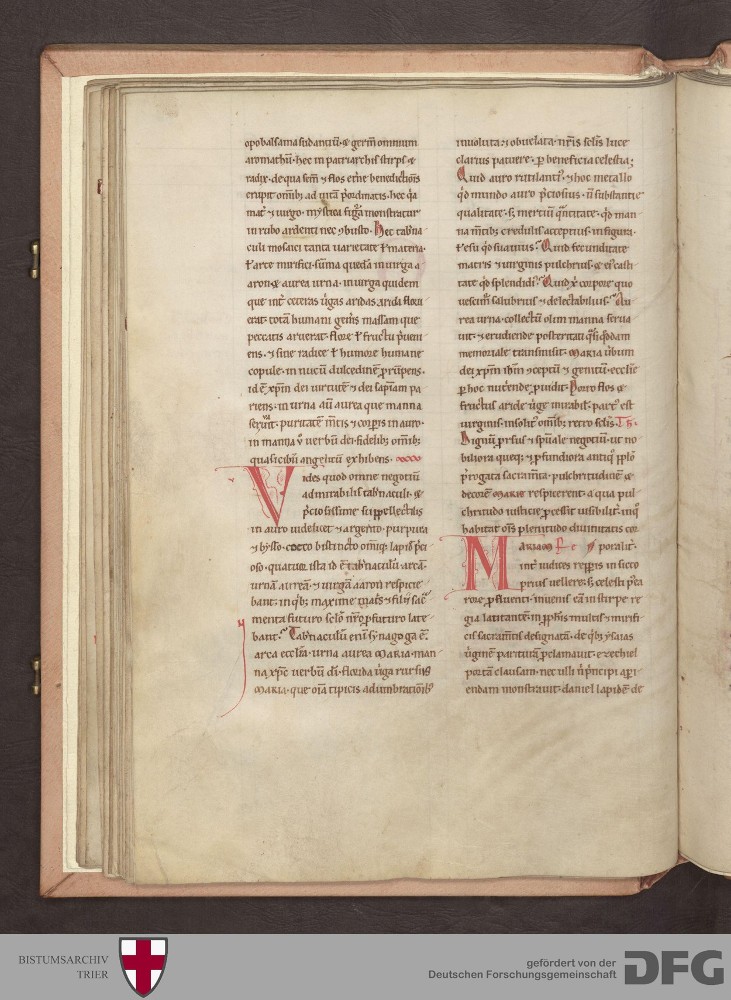 opobalsama sudantiū· & germ̄ omnium
aromathū· hec in patriarchis stirps &
radix· de qua sem̄ & flos et̄ne benedictiōis
erupit om̄ib; ad uitā p̄ordinatis· hec q̄a
mat̄ ⁊ uirgo· mystica figa monstratur
in rubo ardenti nec ɔbusto· Hec tab̄na
culi mosaici tanta uarietate ł materia·
ł arte mirifici· sūma quedā in uirga a
aron & aurea urna· in uirga quidem
que int̄ ceteras ūgas aridas aridi floru
erat· totā humani gen̄is massam que
peccatis aruerat· flore ł fructu p̄ueni
ens· ⁊ sine radice ł humore humane
copule· in nucū dulcedinē p̄rūpens·
id ē xp̄m dei uirtutē ⁊ dei sap̄iam pa
riens· in urna aū aurea que manna
seruit· puritatē m̄tis ⁊ corp̄is in auro·
in manna v̄ uerbū dei· fidelib; om̄ib;
quasi cibū angelicū exhibens·
Vides quod omne negotiū
admirabilis tab̄naculi· &
p̄ciosissime suppellectilis
in auro uidelicet ⁊ argento· purpura
⁊ bysso· cocco bis tincto om̄iq; lapid̄ p̄ci
oso· quatuor ista id ē tab̄naculū· arcā·
urnā aureā· ⁊ uirgā aaron respicie
bant· in qb; maxime mat̄s ⁊ filii sac̄
menta futuro sc̄lo nr̄o p̄futuro late
bant· Tab̄naculū eni synagoga ē·
arca eccl̄ia· urna aurea maria· man
na xp̄c uerbū di· florida ūga rursus
maria· que oīa tipicis adumbrationib;
inuoluta ⁊ obuelata· nr̄is sc̄lis luce
clarius patuere· p beneficia celestia;
Quid auro rutilanti;· ⁊ hoc metallo
qd mundo auro p̄ciosius· n̄ substantie
qualitate· s; mercium q̄ntitate· qd man
na m̄tib; credulis acceptius in figura·
ł esu qd suauius· Quid fecunditate
matris ⁊ uirginis pulchrius· & ei; casti
tate qd splendidi; Quid x̄ corpore quo
uescim̄ salubrius ⁊ delectabilius· Au
rea urna· collectū olim manna serua
uit· ⁊ erudiende posteritati q̄si q̄ddam
memoriale transmisit· maria ūbum
dei xp̄m ih̄m ɔceptū ⁊ genitū· ecclīe
p hoc nut̄ende p̄uidit· Porro flos &
fructus aride ūge mirabil· part; est
uirginis· insolit; om̄ib; retro sc̄lis·
Dignū p̄rsus ⁊ spūale negotiū· ut no
biliora queq; ⁊ p̄fundiora antiq pp̄lo
p̄rogata sacram̄ta· pulchritudinē &
decorē marie respicerent· a qua pul
chritudo iusticie p̄cessit uisibilit̄· inq
habitat om̄s plenitudo diuinitatis cor
Mariam poralit̄·
int̄ iudices repp̄is in sicco
prius uellere· s; celesti p̄ea
rore p̄fluenti· inuenis eā in stirpe re
gia latitantē· in pp̄his multis ⁊ mirifi
cis sacram̄tis designatā· de qb; ysaias
ūginē parituram p̄clamauit· ezechiel
portā clausam· nec ulli n̄ principi api
endam monstrauit· daniel lapidē de
BISTUMSARCHIV
TRIER
gefördert von der
Deutschen Forschungsgemeinschaft
DFG